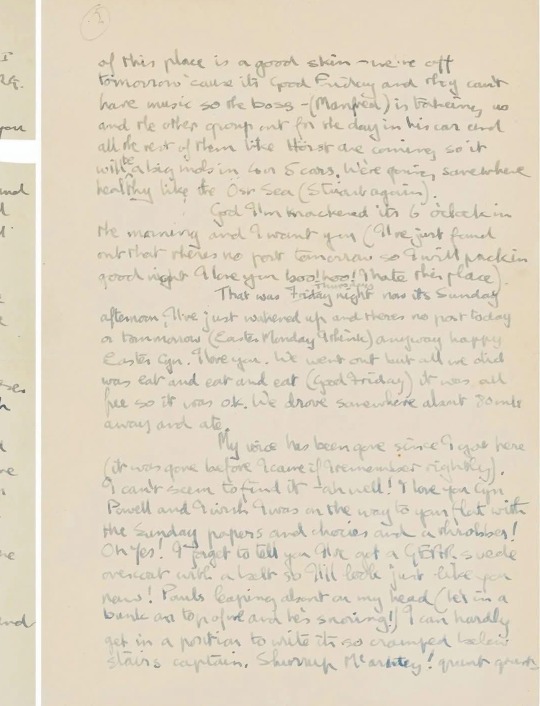 2
of this place is a good skin - we're off
tomorrow 'cause its Good Friday and they can't
have music so the boss - (Manfred) is taking us
and the other group out for the day in his car and
all the rest of them like Horst are coming so it
will be a big mob in 4 or 5 cars. We're going somewhere
healthy like the Ost Sea (Stuart again).
God I'm knackered its 6 o'clock in
the morning and I want you (I've just found
out that theres no post tomorrow so I will pack in
good night I love you boo! hoo! I hate this place).
That was Friday Thursday night now its Sunday
afternoon, I've just wakened up and theres no post today
or tommorow (Easter Monday I think) anyway happy
Easter Cyn. I love you. We went out but all we did
was eat and eat and eat (Good Friday) it was all
free so it was ok. We drove somewhere about 80 mls
away and ate.
My voice has been gone since I got here
(it was gone before I came if I remember rightly).
I can't seem to find it - ah well! I love you Cyn
Powell and I wish I was on the way to your flat with
the Sunday papers and chocies and a throbber!
Oh Yes! I forgot to tell you I've got a GEAR suede
overcoat with a belt so I'll look just like you
now! Pauls leaping about on my head (he's in a
bunk on top of me and he's snoring!) I can hardly
get in a position to write its so cramped below
stairs captain. Shurrup Mcartney! grunt grunt